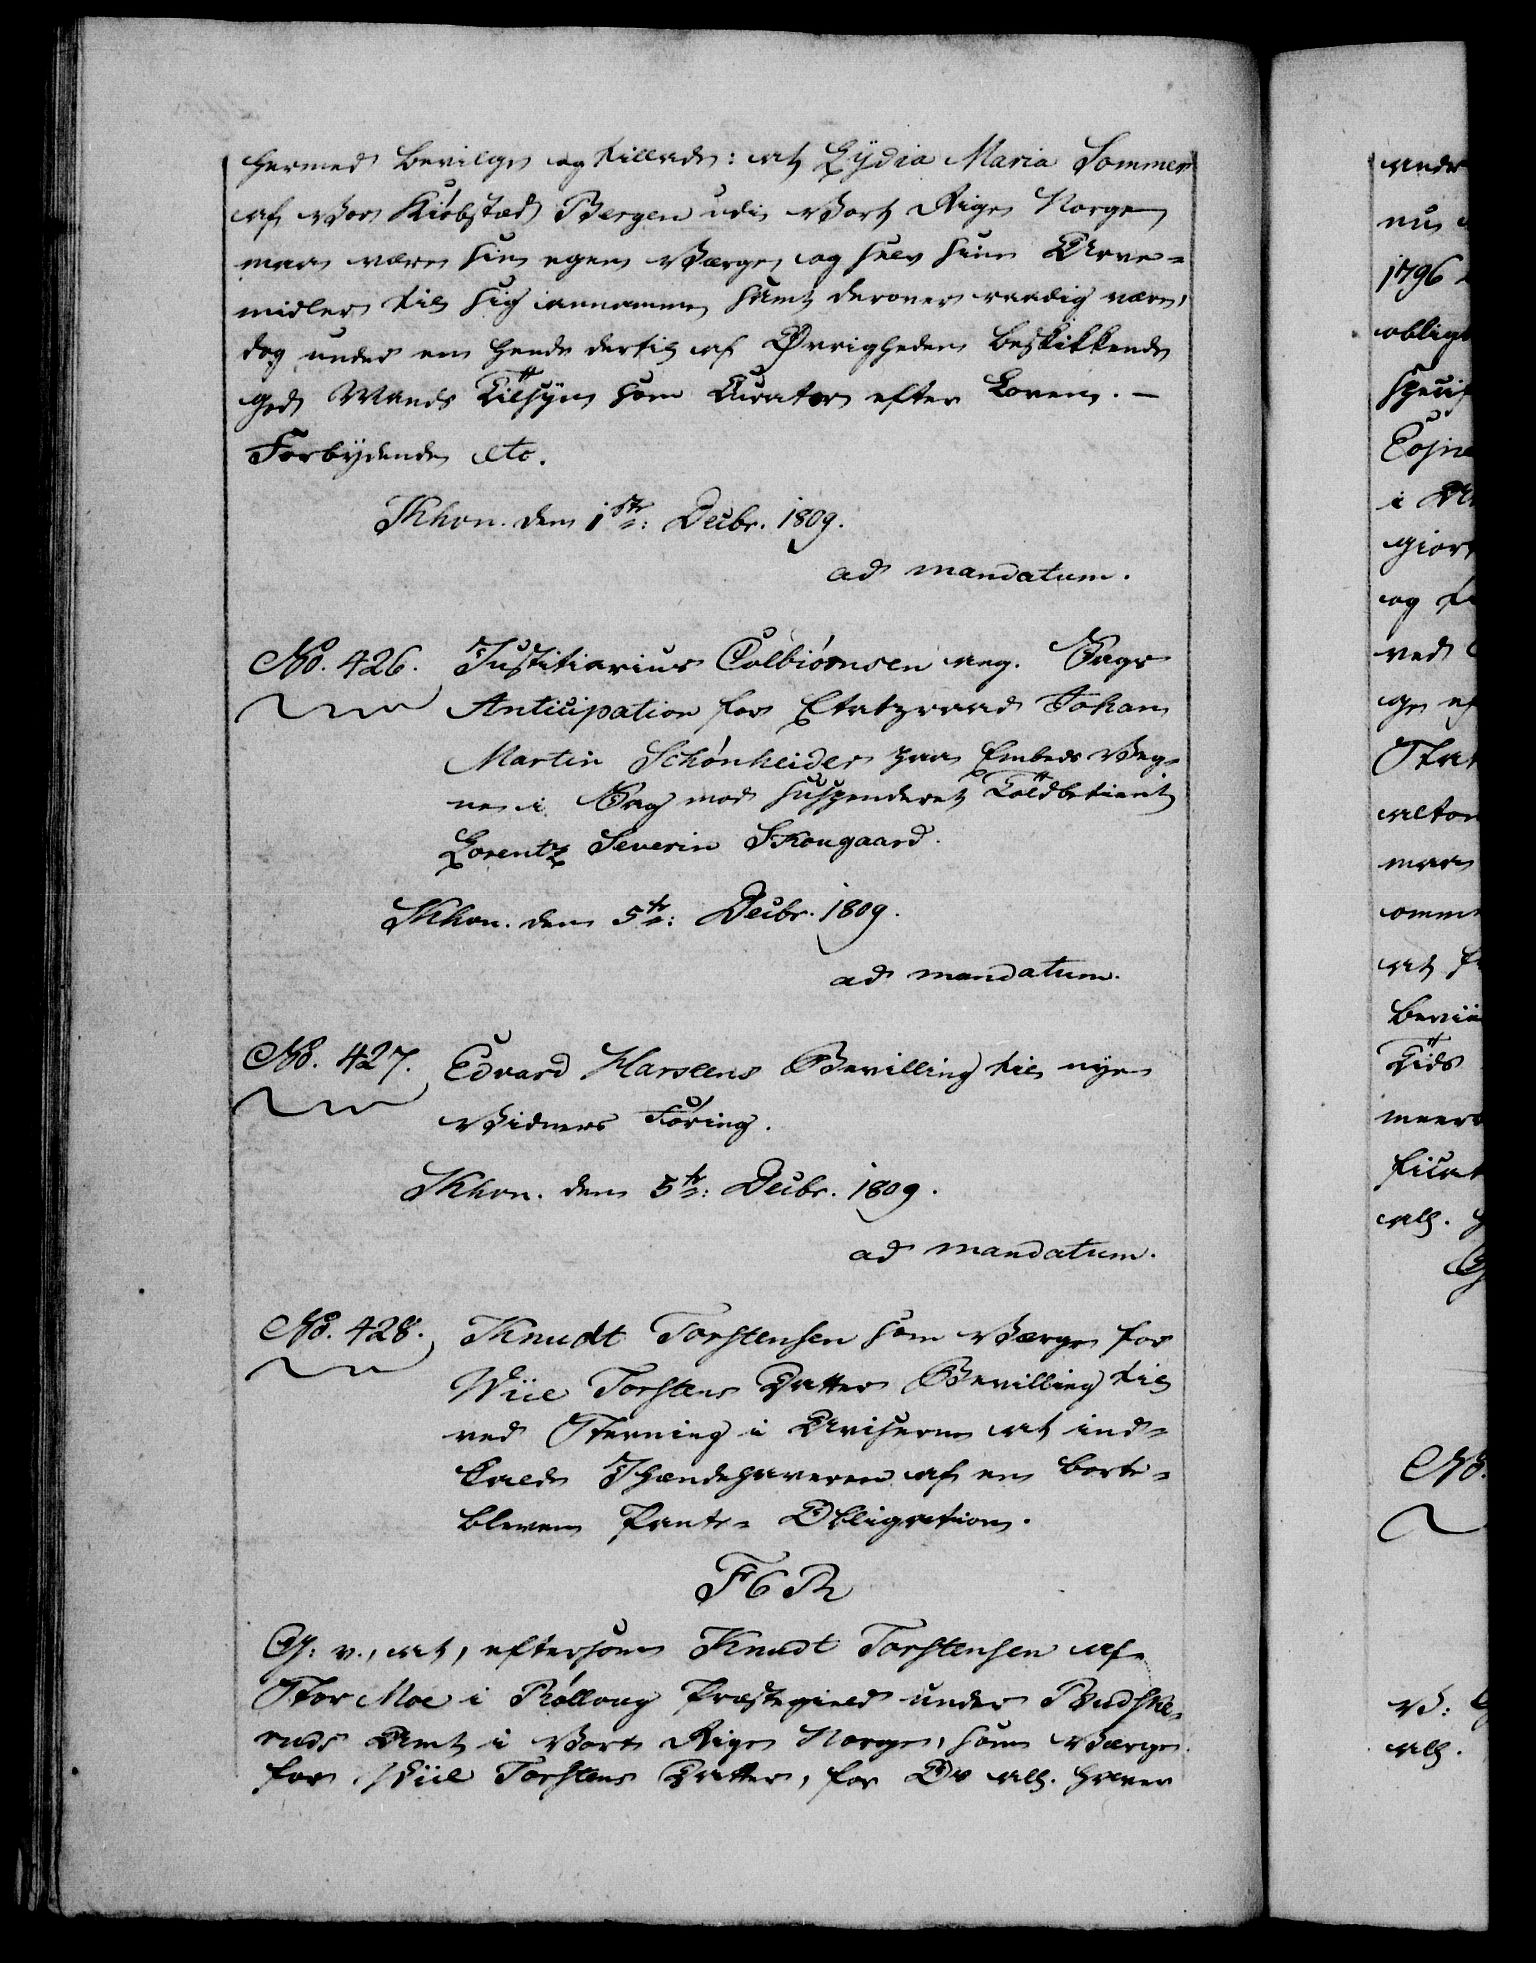 hermed bevilge og tillade: at Lÿdia Maria Sommer
af Vor Kiøbstæd Bergen udi Vort Rige Norge
maa være sin egen Værge og selv sine Arve-
midler til sig annamme samt derover raadig være,
dog under en hende dertil af Øvrigheden beskikkende
god Mands Tilsÿn som Curator efter Loven. —
Forbÿdende etc.
Khvn. den 1ste: Decbr. 1809.
ad mandatum.
No. 426. Justitiarius Colbiørnsen ang. Sags
Anticipation for Etatsraad Johan
Martin Schønheider paa Embeds Veg-
ne i Sag mod suspenderet Toldbetient
Lorentz Severin Skougaard.
Khvn. den 5te: Decbr. 1809.
ad mandatum.
No. 427. Edvard Harslens Bevilling til nye
Vidners Føring.
Khvn. den 5te: Decbr. 1809.
ad mandatum.
No. 428. Knudt Torstensen som Værge for
Wiie Torstens Datter Bevilling til
ved Stevning i Aviserne at ind-
kalde Ihændehaveren af en borte-
bleven Pante-Obligation.
F6R
G: v., at, eftersom Knudt Torstensen af
Stor Moe i Rølloug Præstegield under Budske-
ruds Amt i Vort Rige Norge, som Værge
for Wiie Torstens Datter, for Os all. haver
1796
i
og
ved
Stat
maa
at
Tids
all.
No.
all.